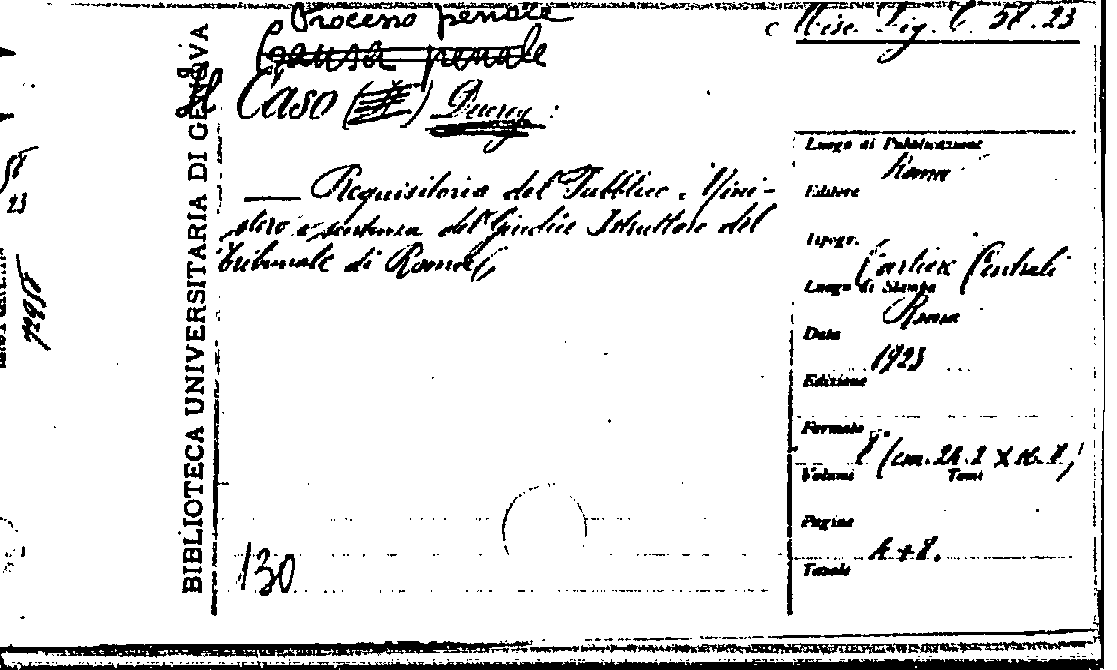 Processo penale
Causa penale
Il Caso
Requisitoria del Pubblico Mini-
stero e sentenza del Giudice Istruttore del
Tribunale di Roma
130
BIBLIOTECA UNIVERSITARIA DI GENOVA
Misc. Lig. C. 58. 23
Luogo di Pubblicazione
Roma
Editore
Tipogr.
Cartiere Centrali
Luogo di Stampa
Roma
Data
1923
Edizione
Formato
8° (cm.
Volumi Tomi
Pagine
Tavole
58
23